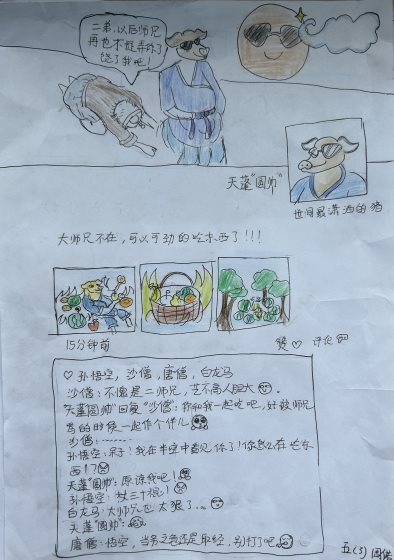 二弟,以后师兄
再也不捉弄你了
饶了我吧!
天蓬"圆帅"
世间最潇洒的猪
大师兄不在,可以可劲的吃东西了!!!
15分钟前
赞♡ 评论
♡孙悟空,沙僧,唐僧,白龙马
沙僧:不愧是二师兄,艺不高人胆大
天蓬"圆帅"回复"沙僧:你和我一起吃吧,好被师兄
骂的时候一起作个伴儿
沙僧:………
孙悟空:呆子!我在半空中看见你了!你怎么在吃东
西!?
天蓬"圆帅":原谅我吧!
孙悟空:杖三十棍!
白龙马:大师兄也太狠了...
天蓬"圆帅":
唐僧:悟空,当务之急还是取经,别打了吧
五(3)